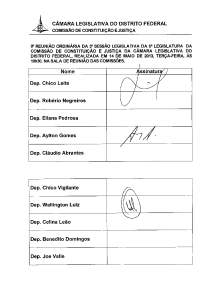 CÂMARA LEGISLATIVA DO DISTRITO FEDERAL
COMISSÃO DE CONSTITUIÇÃO E JUSTIÇA
9ª REUNIÃO ORDINÁRIA DA 3ª SESSÃO LEGISLATIVA DA 6ª LEGISLATURA DA
COMISSÃO DE CONSTITUIÇÃO E JUSTIÇA DA CÂMARA LEGISLATIVA DO
DISTRITO FEDERAL, REALIZADA EM 14 DE MAIO DE 2013, TERÇA-FEIRA, ÀS
10h30, NA SALA DE REUNIÃO DAS COMISSÕES.
Nome Assinatura
Dep. Chico Leite
Dep. Robério Negreiros
Dep. Eliana Pedrosa
Dep. Aylton Gomes
Dep. Cláudio Abrantes
Dep. Chico Vigilante
Dep. Wellington Luiz
Dep. Celina Leão
Dep. Benedito Domingos
Dep. Joe Valle